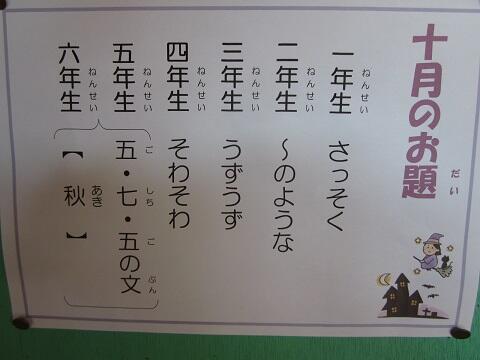 十月のお題
だい
一年生 さっそく
ねんせい
二年生 ～のような
ねんせい
三年生 うずうず
ねんせい
四年生 そわそわ
ねんせい
五年生
ねんせい
六年生
ねんせい
五・七・五の文
ご しち ご ぶん
【 秋 】
あき